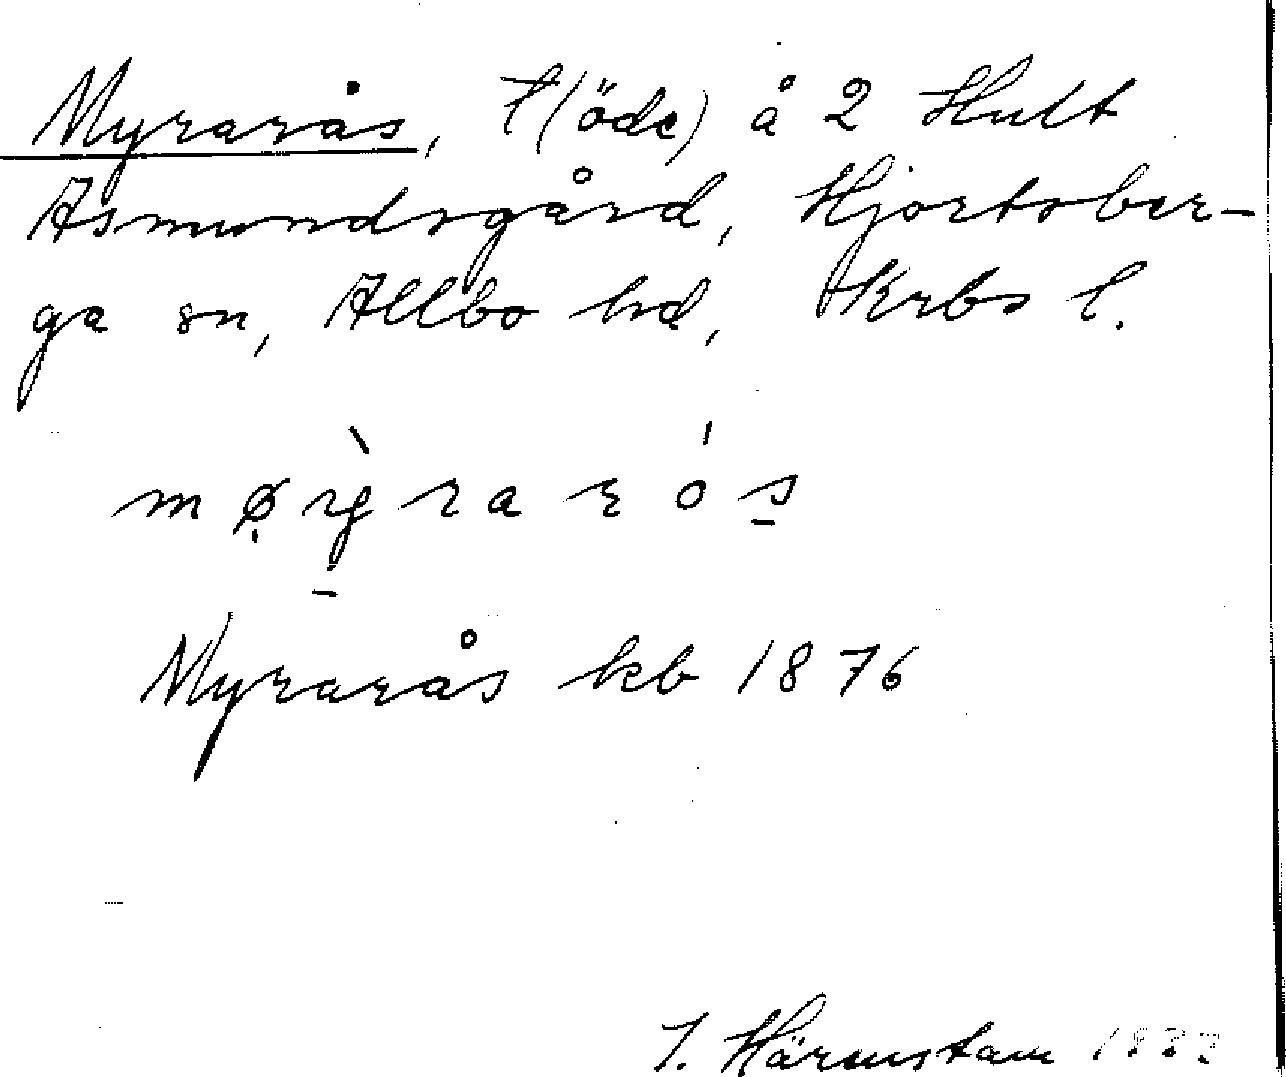 Myrarås, t(öde) å 2 Hult
Asmundsgård, Hjortsber-
ga sn, Allbo hd, Krbs l.
Myrarås kb 1876
I. Härenstam